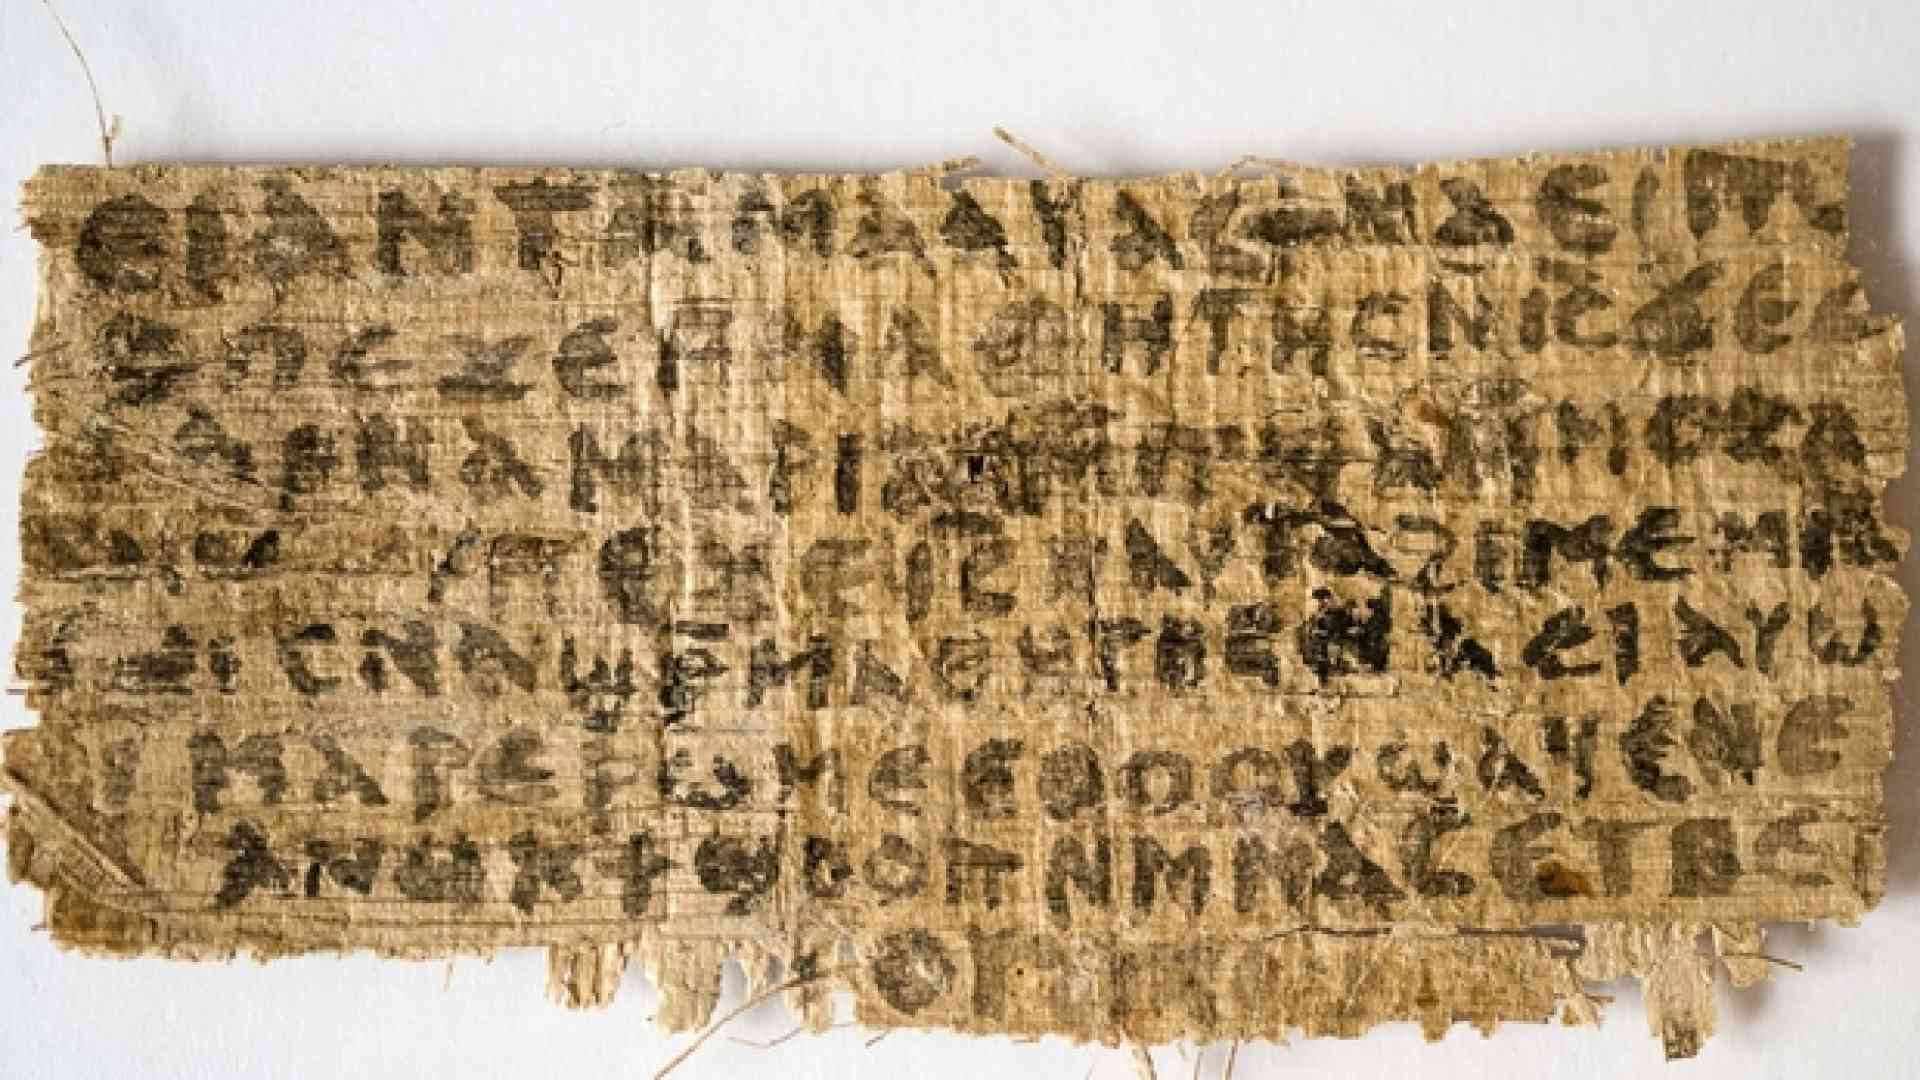 ⲉⲓ ⲁⲛ ⲧⲁⲙⲁⲁⲩ ⲁⲥϯ ⲛⲁⲉⲓ ⲡⲱ
ⲥ ⲡⲉϫⲉ ⲙⲙⲁⲑⲏⲧⲏⲥ ⲛⲓ̅ⲥ̅ ϫⲉ ⲥ
ⲁⲣⲛⲁ ⲙⲁⲣⲓⲁⲙ ⲙⲡϣⲁ ⲙⲙⲟⲥ ⲁⲛ
ⲡⲉϫⲉ ⲓ̅ⲥ̅ ⲛⲁⲩ ⲧⲁϩⲓⲙⲉ ⲙⲛ
ⲥⲛⲁϣⲣⲙⲁⲑⲏⲧⲏⲥ ⲛⲁⲉⲓ ⲁⲩⲱ
ⲓ ⲙⲁⲣⲉⲣⲱⲙⲉ ⲉⲑⲟⲟⲩ ϣⲁϥⲉ ⲛⲉ
ⲁⲛⲟⲕ ϯϣⲟⲟⲡ ⲛⲙⲙⲁⲥ ⲉⲧⲃⲉ ⲡ